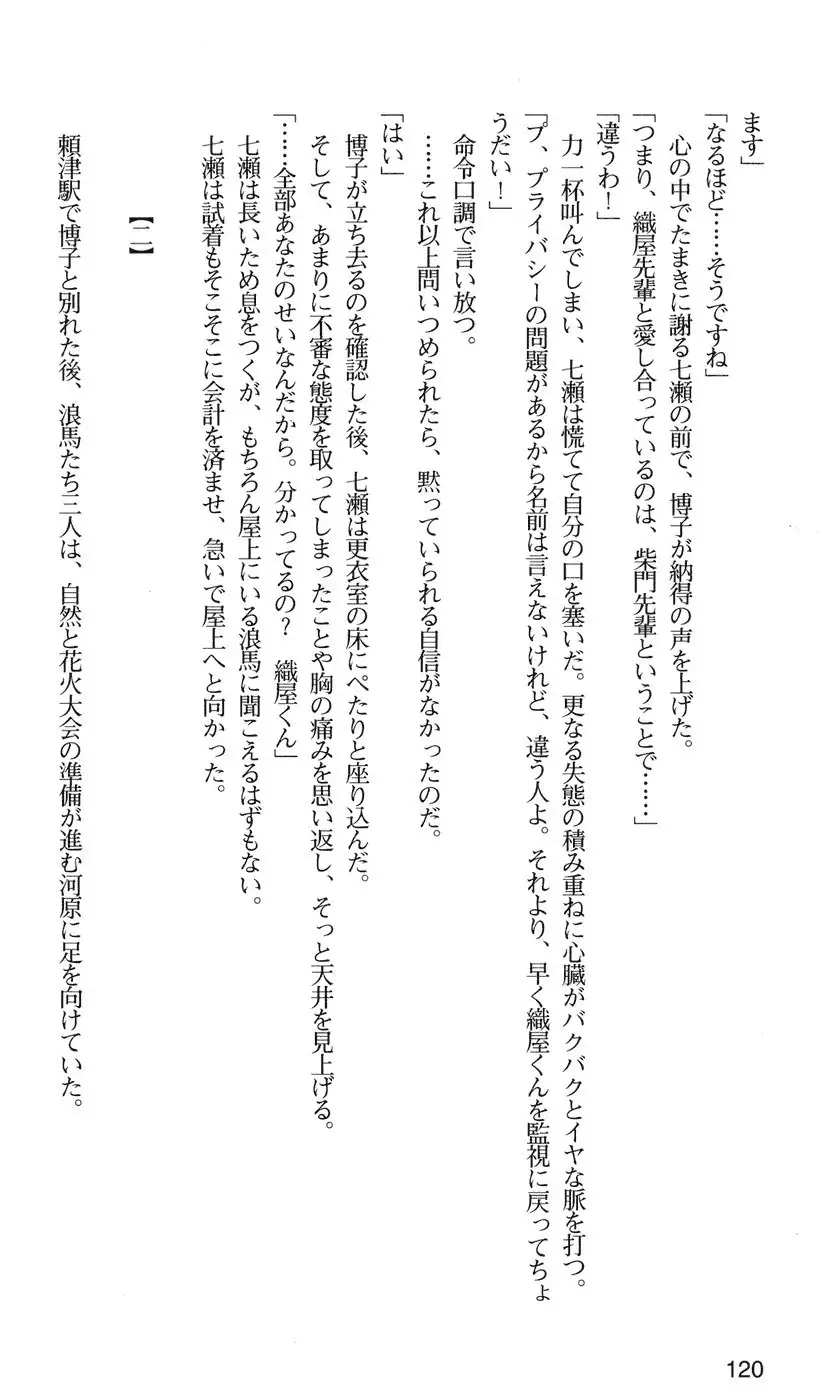 ます」
「なるほど……そうですね」
　心の中でたまきに謝る七瀬の前で、博子が納得の声を上げた。
「つまり、織屋先輩と愛し合っているのは、柴門先輩ということで……」
「違うわ！」
　力一杯叫んでしまい、七瀬は慌てて自分の口を塞いだ。更なる失態の積み重ねに心臓がバクバクとイヤな脈を打つ。
「プ、プライバシーの問題があるから名前は言えないけれど、違う人よ。それより、早く織屋くんを監視に戻ってちょ
うだい！」
　命令口調で言い放つ。
　……これ以上問いつめられたら、黙っていられる自信がなかったのだ。
「はい」
　博子が立ち去るのを確認した後、七瀬は更衣室の床にぺたりと座り込んだ。
　そして、あまりに不審な態度を取ってしまったことや胸の痛みを思い返し、そっと天井を見上げる。
「……全部あなたのせいなんだから。分かってるの？　織屋くん」
　七瀬は長いため息をつくが、もちろん屋上にいる浪馬に聞こえるはずもない。
　七瀬は試着もそこそこに会計を済ませ、急いで屋上へと向かった。
【二】
　頼津駅で博子と別れた後、浪馬たち三人は、自然と花火大会の準備が進む河原に足を向けていた。
120